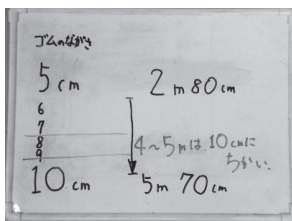 ゴムのながさ
5cm 2m80cm
6
7
8
9
4～5mは10cmに
ちかい。
10cm 5m70cm